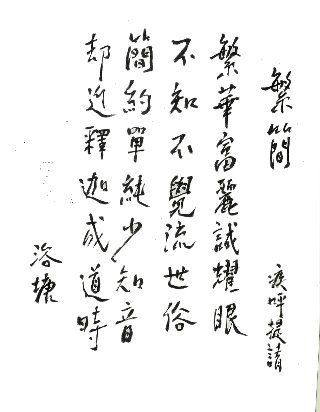 繁簡
呼提請
繁華富麗誠耀眼
不知不覺流世俗
簡約單純少知音
却近釋迦成道時
塘